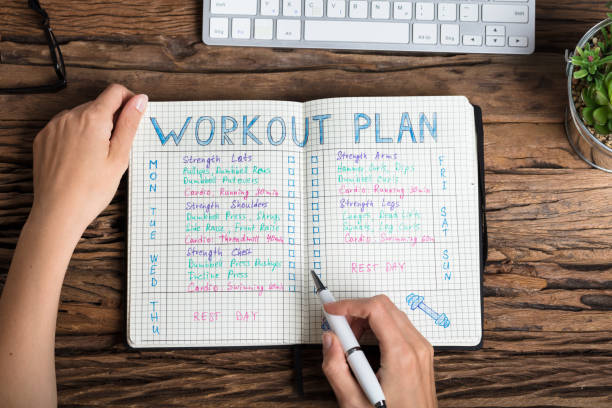 WORKOUT PLAN
MON
Strength Lats
Pullups, Dumbbell Rows
Dumbbell Pullovers
Cardio: Running 30min
TUE
Strength Shoulders
Dumbbell Press, Shrugs
Side Raise, Front Raise
Cardio: Threadmill 40min
WED
Strength Chest
Dumbbell Press Pushups
Incline Press
Cardio: Swimming 60min
THU
REST DAY
FRI
Strength Arms
Hammer Curls, Dips
Dumbbell Curls
Cardio: Running 30min
SAT
Strength Legs
Lunges, Dead Lifts
Squats, Leg Curls
Cardio: Swimming 60min
SUN
REST DAY